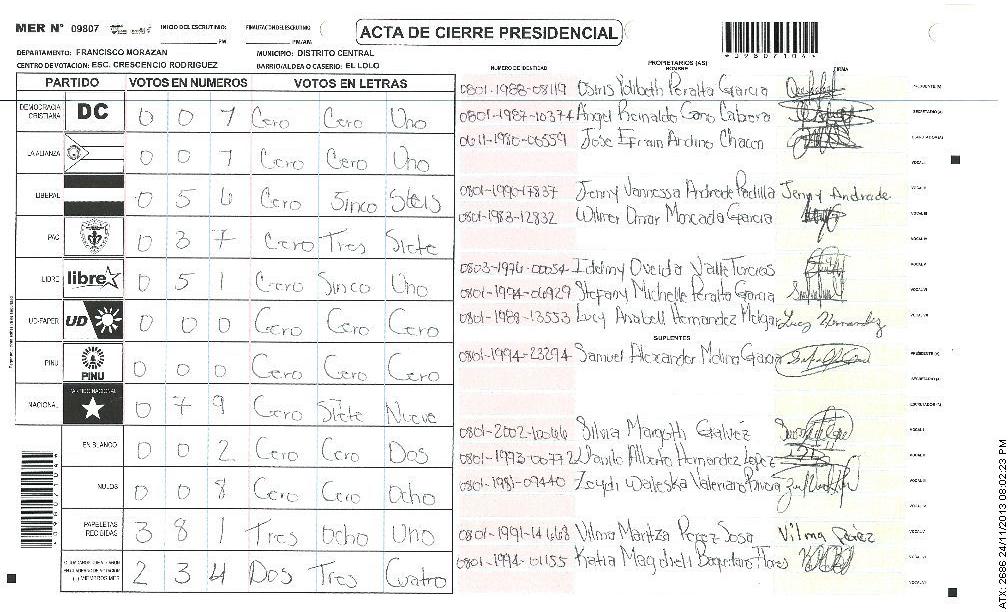 MER N° 09807 INICIO DEL ESCRUTINIO: PM FINALIZACION DEL ESCRUTINIO PM/AM
ACTA DE CIERRE PRESIDENCIAL
DEPARTAMENTO: FRANCISCO MORAZAN MUNICIPIO: DISTRITO CENTRAL
CENTRO DE VOTACION: ESC. CRESCENCIO RODRIGUEZ BARRIO/ALDEA O CASERIO: EL LOLO
PARTIDO VOTOS EN NUMEROS VOTOS EN LETRAS
DEMOCRACIA CRISTIANA DC 0 0 1 Cero Cero Uno
LA ALIANZA 0 0 1 Cero Cero Uno
LIBERAL 0 5 6 Cero Sinco Steis
PAC 0 3 7 Cero Tres Siete
LIBRE libre 0 5 1 Cero Sinco Uno
UD-FAPER UD 0 0 0 Cero Cero Cero
PINU PINU 0 0 0 Cero Cero Cero
NACIONAL PARTIDO NACIONAL 0 7 9 Cero Siete Nueve
EN BLANCO 0 0 2 Cero Cero Dos
NULOS 0 0 8 Cero Cero Ocho
PAPELETAS RECIBIDAS 3 8 1 Tres Ocho Uno
2 3 4 Dos Tres Cuatro
NUMERO DE IDENTIDAD PROPIETARIOS (AS) NOMBRE FIRMA
0801-1988-08119 Osiris Yolibeth Peralta Garcia
0801-1987-10374 Angel Reinaldo Cano Cabrera
0611-1980-00559 Jose Efrain Andino Chacon
0801-1990-17837 Jenny Vannessa Andrade Padilla Jenny Andrade
0801-1983-12832 Wilmer Omar Moncada Garcia
0803-1976-00054 Oveida Valle Turcios
0801-1994-06929 Stefany Michelle Peralta Garcia
0801-1988-13553 Lucy Anabell Hernandez Melgar Lucy Hernandez
SUPLENTES
0801-1994-23294 Samuel Alexander Molina Garcia
0801-2002-10066 Silvia Margoth Galvez
0801-1993-00772 Danilo Alberto Hernandez Lopez
0801-1981-09440 Waleska Valeriano
0801-1991-14668 Vilma Maritza Perez Sosa Vilma Perez
0801-1994-01155 Katia Flores
ATX: 2686 24/11/2013 08:02:23 PM